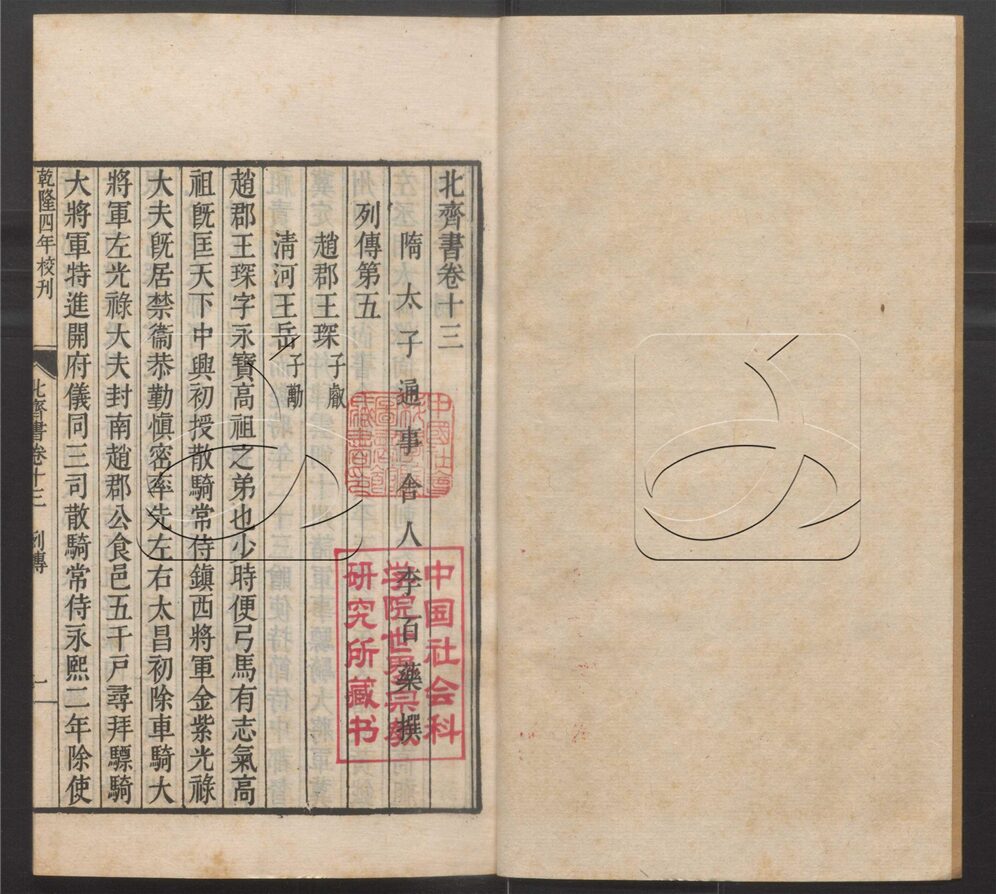 北齊書卷十三
隋太子通事舍人李百藥撰
列傳第五
趙郡王琛子叡
淸河王岳子勱
趙郡王琛字永寶高祖之弟也少時便弓馬有志氣高
祖旣匡天下中興初授散騎常侍鎭西將軍金紫光祿
大夫旣居禁衞恭勤愼密率先左右太昌初除車騎大
將軍左光祿大夫封南趙郡公食邑五千戸尋拜驃騎
大將軍特進開府儀同三司散騎常侍永熙二年除使
乾隆四年校刊
北齊書卷十三 列傳
一
中国社会科
学院世界宗教
研究所藏书